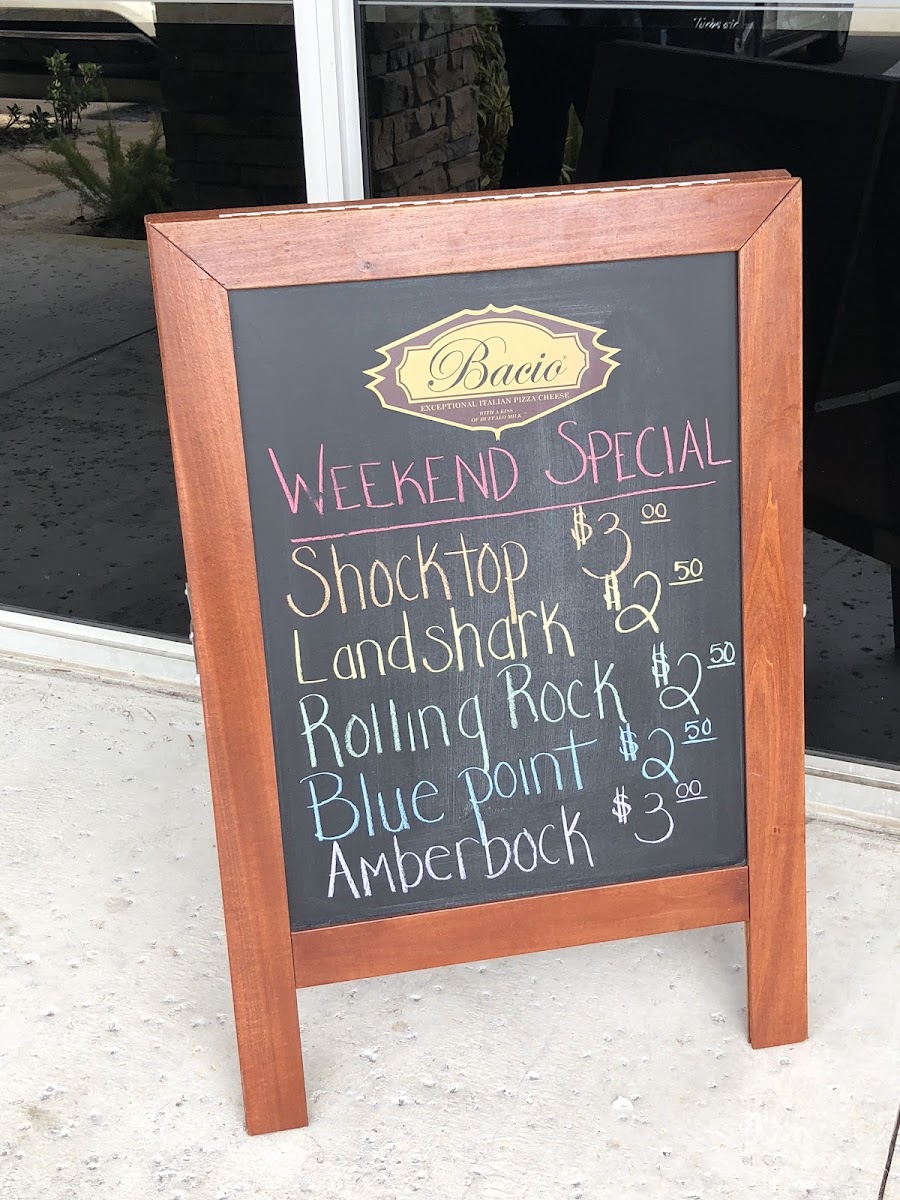 Turbo air
Bacio®
EXCEPTIONAL ITALIAN PIZZA CHEESE
WITH A KISS
OF BUFFALO MILK™
WEEKEND SPECIAL
Shocktop $3 00
Landshark $2 50
Rolling Rock $2 50
Blue point $2 50
Amberbock $3 00